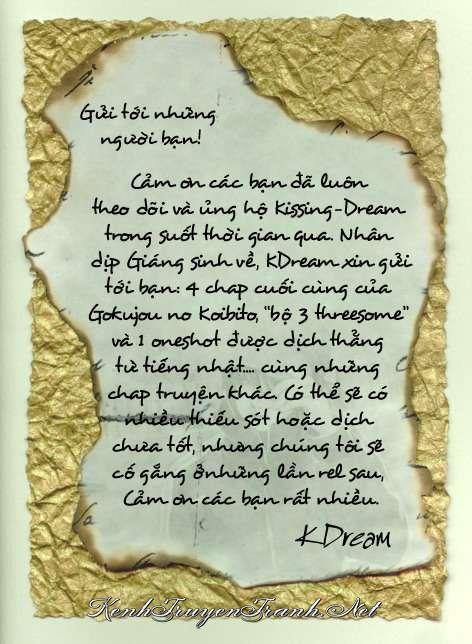 Gửi tới những
người bạn!
Cảm ơn các bạn đã luôn
theo dõi và ủng hộ Kissing-Dream
trong suốt thời gian qua. Nhân
dịp Giáng sinh về, KDream xin gửi
tới bạn: 4 chap cuối cùng của
Gokujou no Koibito, "bộ 3 threesome"
và 1 oneshot được dịch thẳng
từ tiếng nhật.... cùng những
chap truyện khác. Có thể sẽ có
nhiều thiếu sót hoặc dịch
chưa tốt, nhưng chúng tôi sẽ
cố gắng ởnhững lần rel sau,
Cảm ơn các bạn rất nhiều.
KDream
KenhTruyenTranh.Net